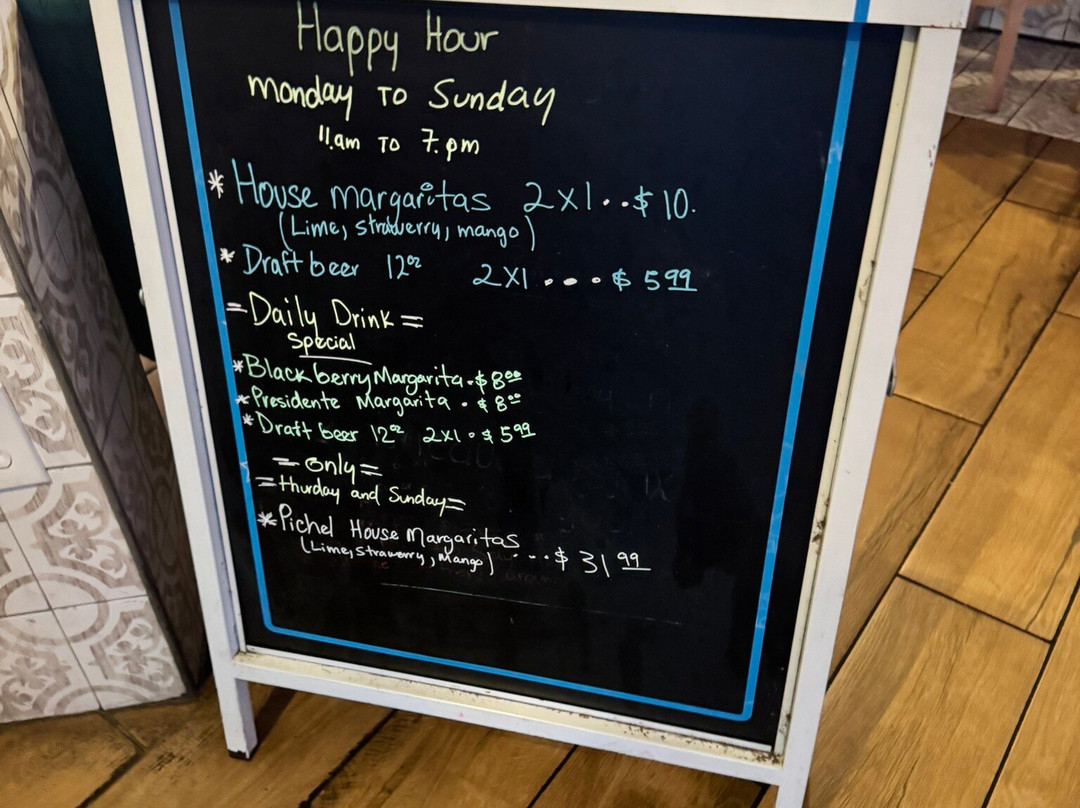 Happy Hour
Monday TO Sunday
11.am TO 7.pm
* House margaritas 2X1..$ 10.
(Lime, strawerry, mango)
* Draft beer 12oz 2X1 .... $ 5.99
=Daily Drink=
Special
*Blackberry Margarita.$8.00
*Presidente Margarita . $8.00
*Draft beer 12oz 2x1 . $5.99
=only=
=thurday and Sunday=
*Pichel House Margaritas
(Lime, Strawerry, Mango) ....$ 31.99